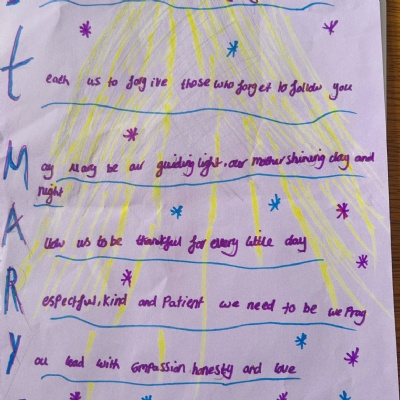 t each us to forgive those who forget to follow you
M ay Mary be our guiding light, our mother shining day and
night
A llow us to be thankful for every little day
R espectful, kind and Patient we need to be we Pray
Y ou lead with Compassion, honesty and love